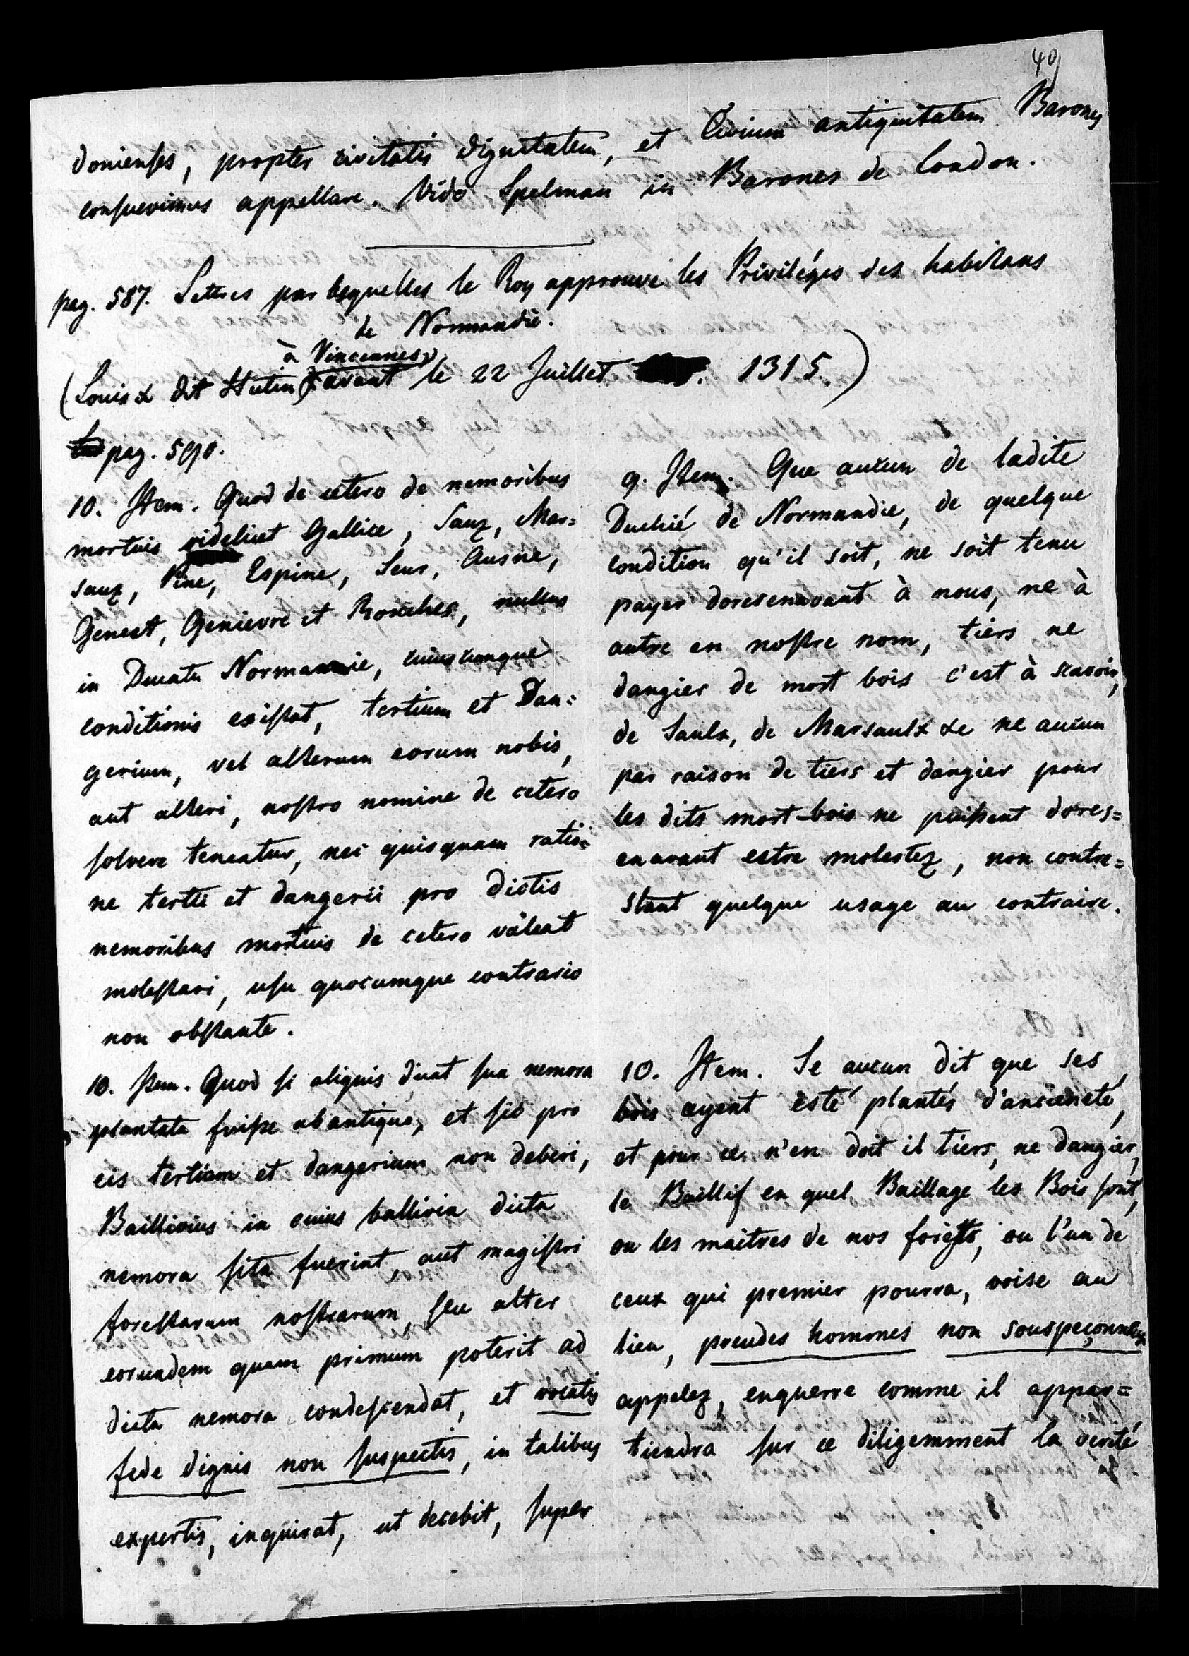 40
donienses, propter civitatis dignitatem, et Civium antiquitatem Barones
consuevimus appellare. Vide Spelman in Barones de London.
pag. 587. Lettres par lesquelles le Roy approuve les Priviléges des habitans
de Normandie.
à Vincennes,
(Louis X dit Hutin) avant le 22 Juillet 1315.)
pag. 590.
10. Item. Quod de cetero de nemoribus
mortuis videlicet Gallice, Saux, Mar=
saux, Pine, Espine, Seur, Ausne,
Genest, Genievre et Ronches, nullus
in Ducatu Normannie, cuiuscunque
conditionis existat, tertium et Dan=
gerium, vel alterum eorum nobis,
aut alteri, nostro nomine de cetero
solvere teneatur, nec quisquam ratio=
ne tertii et dangerii pro dictis
nemoribus mortuis de cetero valeat
molestari, usu quocumque contrario
non obstante.
10. Item. Quod si aliquis dicat sua nemora
plantata fuisse ab antiquo, et sic pro
eis tertium et dangerium non deberi,
Baillivius in cuius ballivia dicta
nemora sita fuerint, aut magistri
forestarum nostrarum, seu alter
eorundem quam primum poterit ad
dicta nemora condescendat, et vocatis
fide dignis non suspectis, in talibus
expertis, inquirat, ut decebit, super
9. Item. Que aucun de ladite
Duchié de Normandie, de quelque
condition qu'il soit, ne soit tenu
payer doresenavant à nous, ne à
autre en nostre nom, tiers ne
dangier de mort bois c'est à scavoir,
de Saulx, de Marsaulx &c ne aucun
par raison de tiers et dangier pour
les dits mort-bois ne puissent dores=
enavant estre molestez, non contre=
stant quelque usage au contraire.
10. Item. Se aucun dit que ses
bois ayent esté plantés d'ancieneté,
et pour ce n'en doit il tiers, ne dangier,
le Baillif en quel Baillage les Bois sont,
ou les maitres de nos forests, ou l'un de
ceux qui premier pourra, voise au
lieu, preudes hommes non souspeconnez
appelez, enquerre comme il appar=
tiendra sur ce diligemment la verité